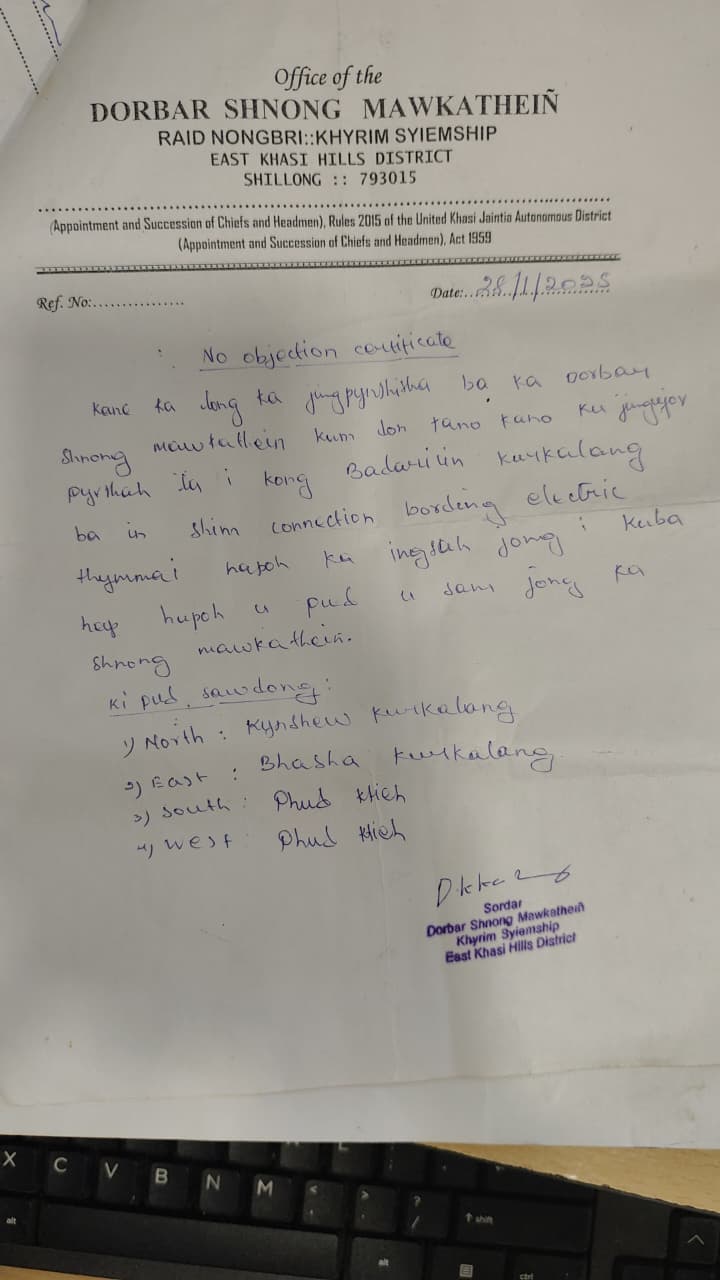 Office of the
DORBAR SHNONG MAWKATHEIÑ
RAID NONGBRI::KHYRIM SYIEMSHIP
EAST KHASI HILLS DISTRICT
SHILLONG :: 793015
(Appointment and Succession of Chiefs and Headmen), Rules 2015 of the United Khasi Jaintia Autonomous District
(Appointment and Succession of Chiefs and Headmen), Act 1959
Ref. No:................ Date:..28/1/2025
: No objection certificate
Kane ka dong ka jingpynshisha ba ka Dorbar
Shnong mawkathein kum don tano kano ka
pyrshah ïa i kong Badarilin
ba in shim connection bording electric
thymmai hapoh ka ingsah jong i kaba
hap hapoh u pud u sam jong ka
Shnong mawkathein.
Ki pud sawdong:
1) North : Kynshew Kurkalang
2) East : Bhasha Kurkalang
3) South : Phud Ktieh
4) West : Phud Ktieh
Sordar
Dorbar Shnong Mawkatheiñ
Khyrim Syiemship
East Khasi Hills District
X C V B N M < > ? /
alt ↑ shift
alt ctrl